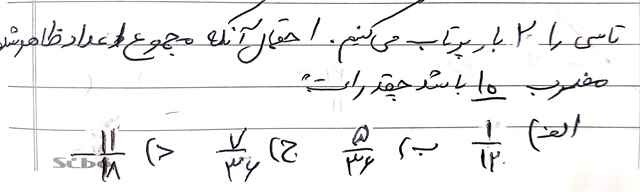 تاسی را ۲ بار پرتاب می‌کنیم. احتمال آنکه مجموع اعداد ظاهر شده
مضرب ۱۰ باشد چقدر است؟
الف) ۱/۱۲ ب) ۵/۳۶ ج) ۷/۳۶ د) ۱۱/۱۸